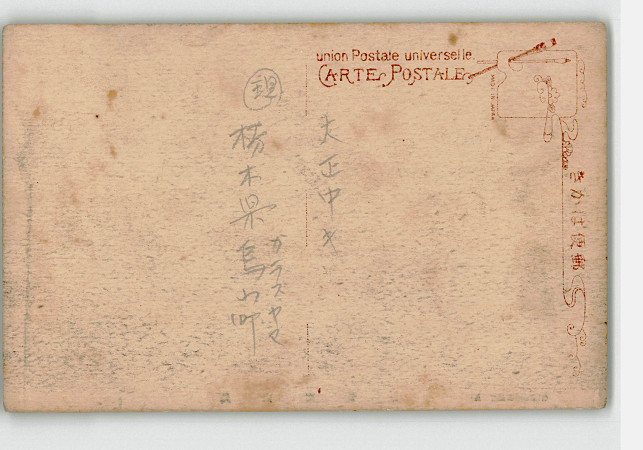 union Postale universelle.
CARTE POSTALE
MADE IN JAPAN
きかは便郵
大正中キ
栃木県烏山町
カラスヤマ